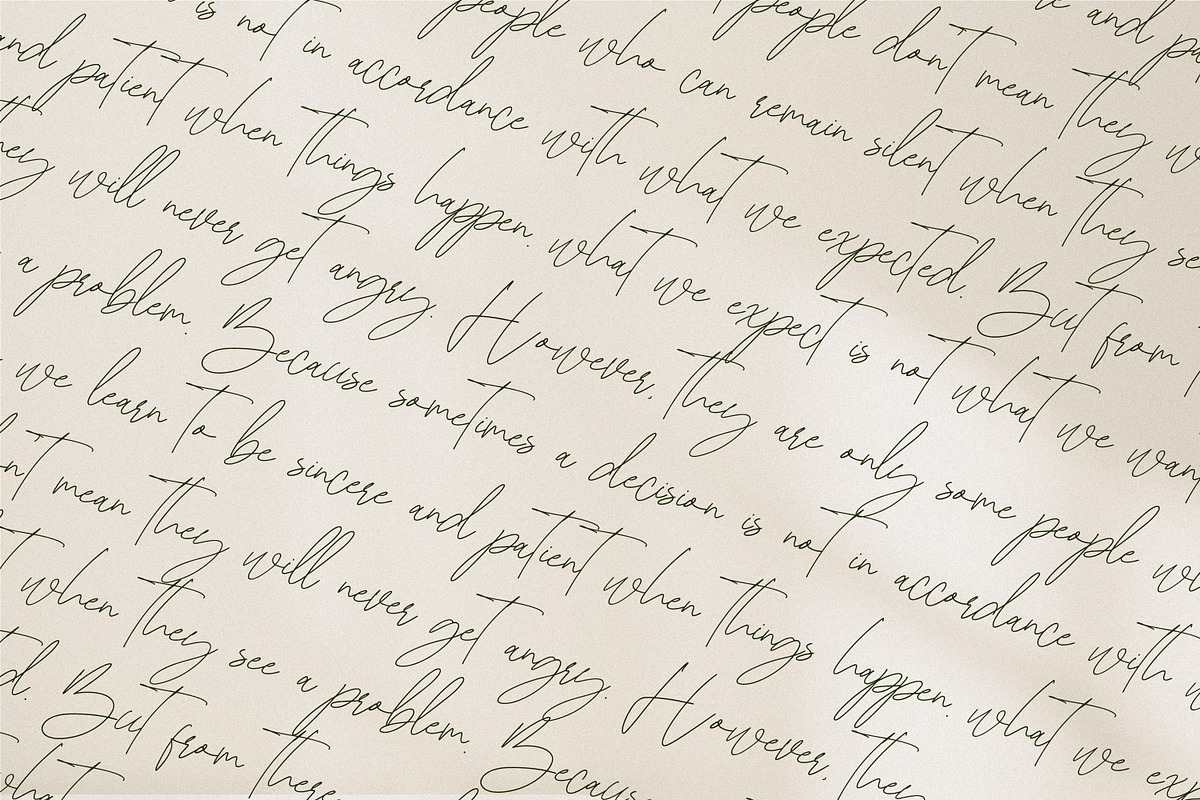 and pa
people don't mean they w
people who can remain silent when they se
is not in accordance with what we expected. But from
and patient when things happen. what we expect is not what we wan
hey will never get angry. However, they are only some people w
a problem. Because sometimes a decision is not in accordance with w
we learn to be sincere and patient when things happen. what we exp
n't mean they will never get angry. However, they
t when they see a problem. Because
d. But from there
what